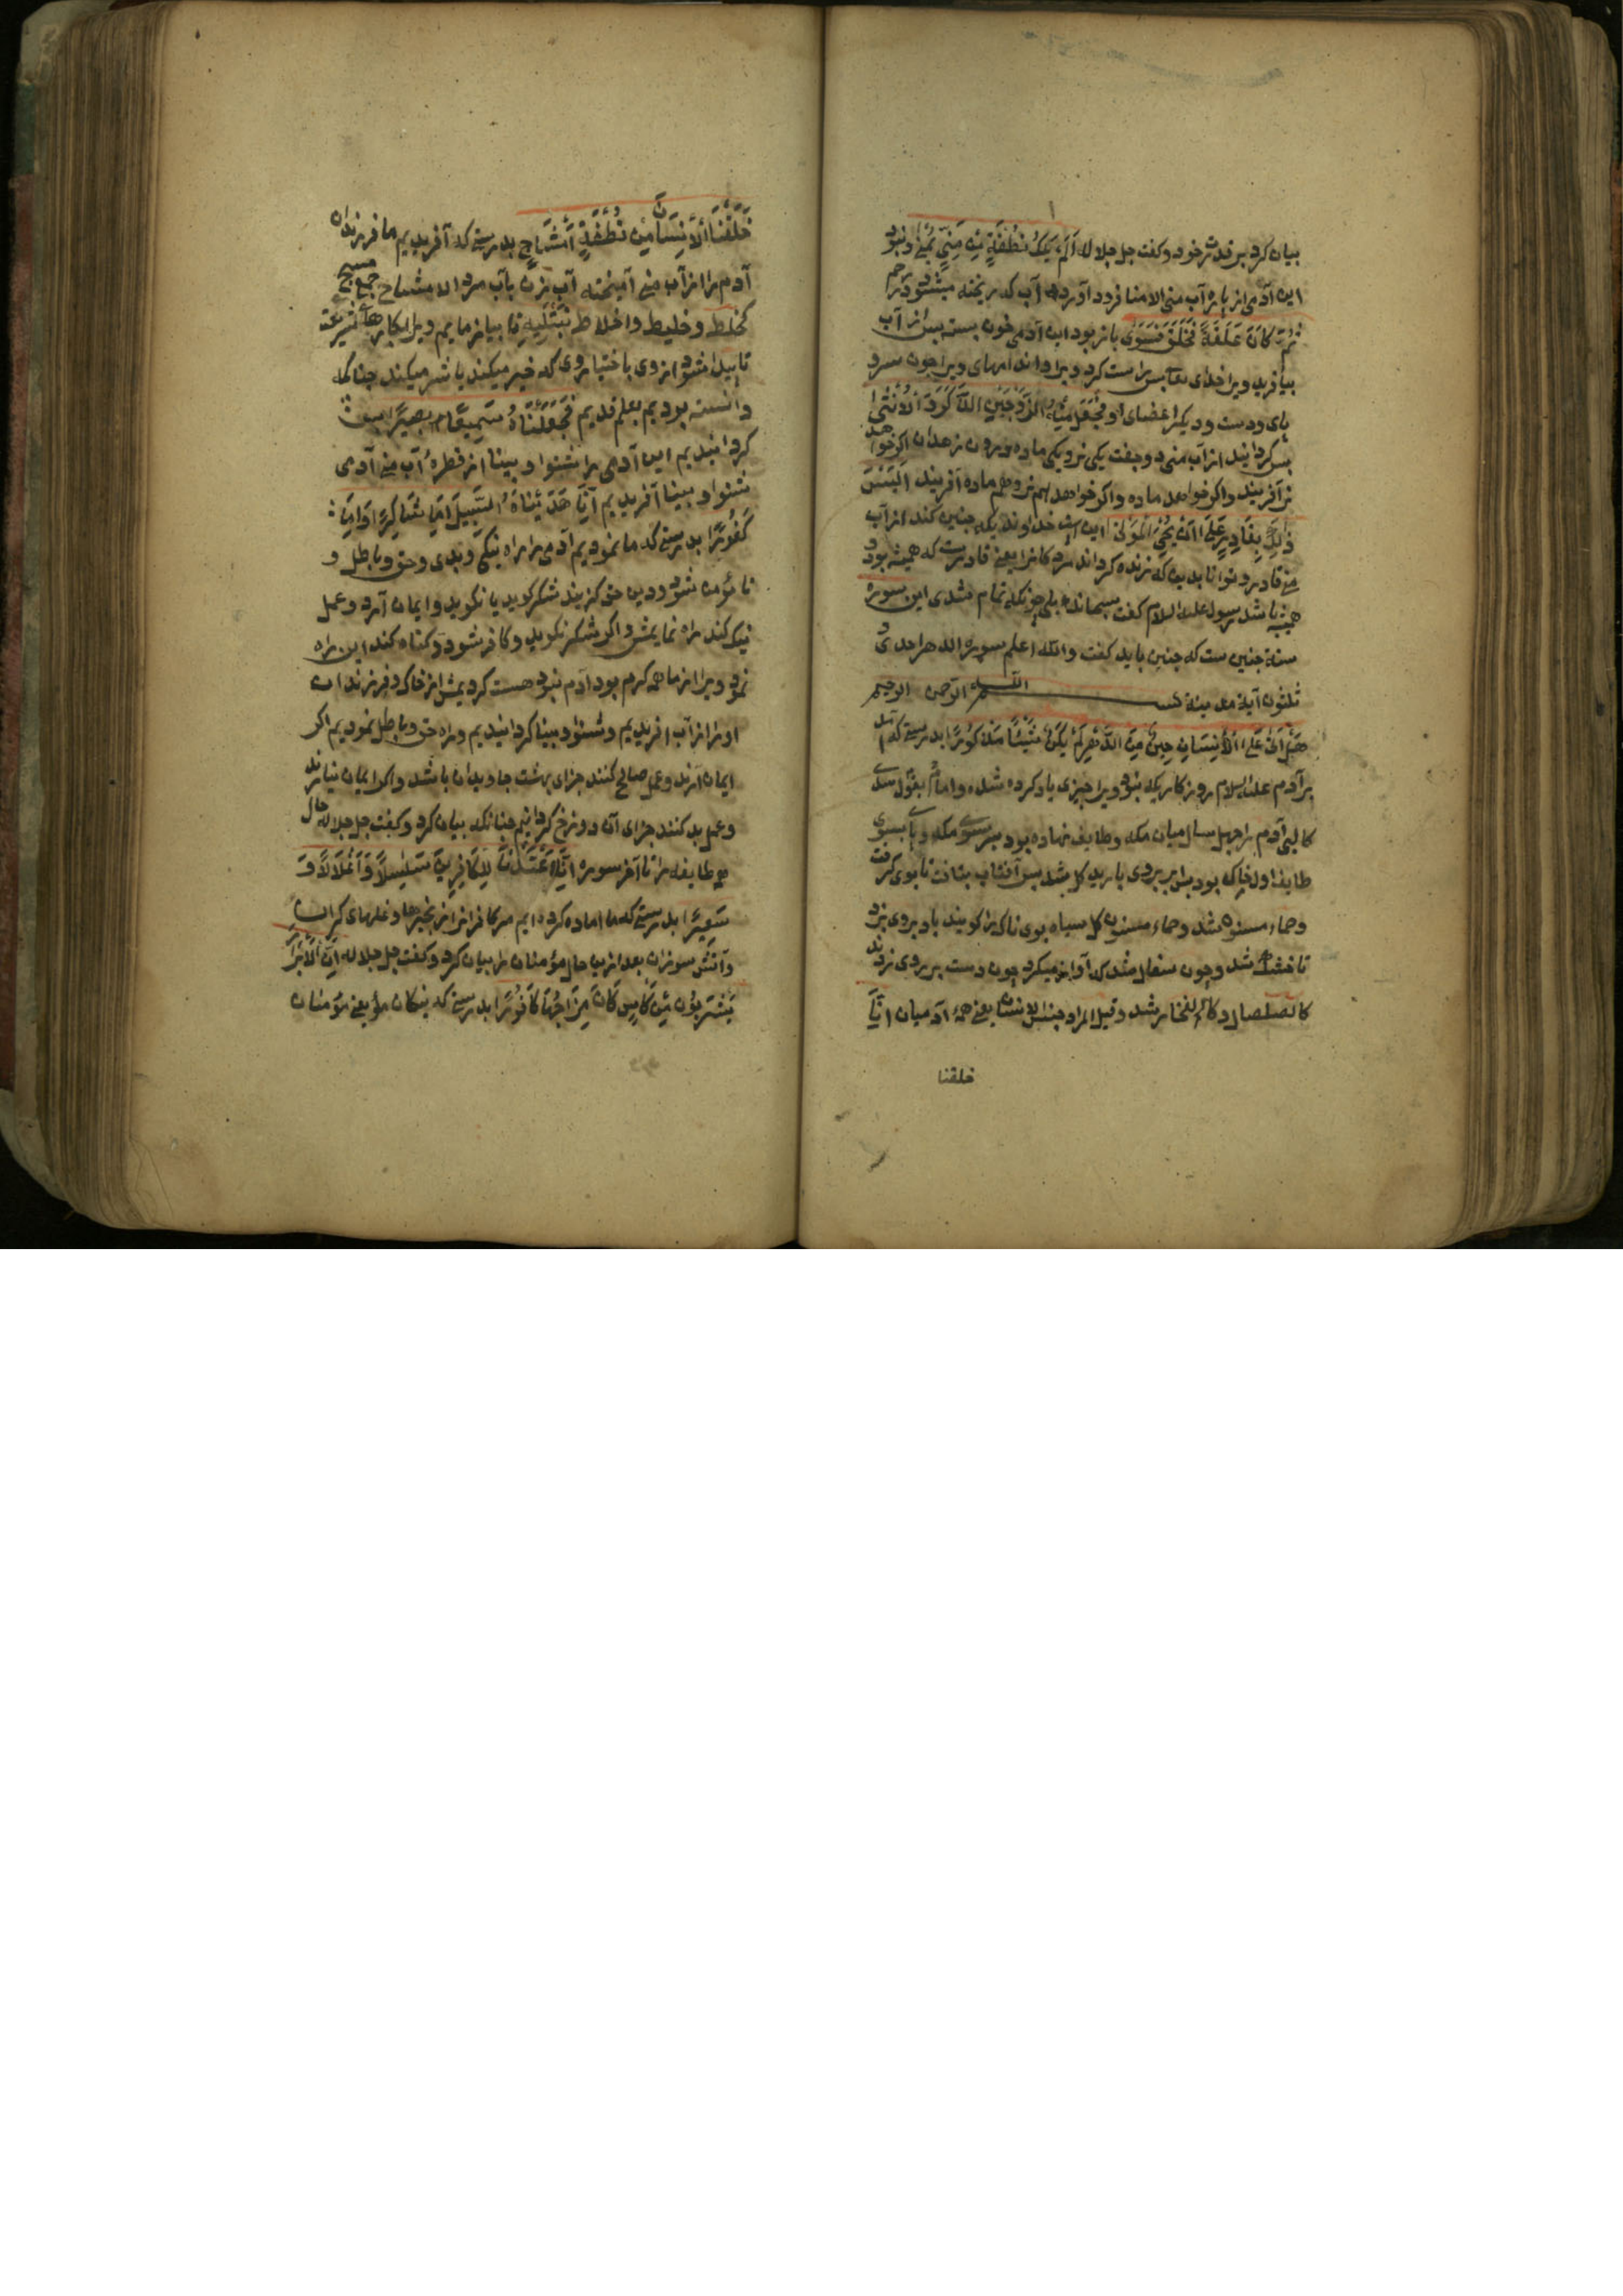 بیان کرد بر قدرت خود و کفت جل جلاله اَلَمْ یَكُ نُطْفَةً مِنْ مَنِیٍّ یُمْنٰی و نبود
این آدمی از پاره آب منی الامنا فرود آوردن آب که ریخته میشود در رحم
ثُمَّ كَانَ عَلَقَةً فَخَلَقَ فَسَوّٰی باز بود این آدمی خون بسته پس از آب
بیافرید ویرا خدای تعا پس راست کرد ویرا و اندامهای ویرا جون سر و
پای و دست و دیکر اعضای او فَجَعَلَ مِنْهُ الزَّوْجَیْنِ الذَّكَرَ وَالْاُنْثٰی
پس کردانید از آب منی دو جفت یکی نر و یکی ماده بیرون زهدان اکر خواهد
نر آفریند و اکر خواهد ماده و اکر خواهد هم نر و هم ماده آفریند اَلَیْسَ
ذٰلِكَ بِقَادِرٍ عَلٰی اَنْ یُحْیِیَ الْمَوْتٰی این خداوندیکه جنین کند از آب
منی قادر و توانا بدین که زنده کرداند مردکانرا یعنی قادرست که همیشه بود و
همیشه باشد رسول علیه السلام کفت سبحانك بلی جونکه تمام شدی این سوره
سنة جنین ست که جنین باید کفت والله اعلم سورة الدهر احدی و
ثلثون آیة مدینة بسم الله الرحمن الرحیم
هَلْ اَتٰی عَلَی الْاِنْسَانِ حِینٌ مِنَ الدَّهْرِ لَمْ یَكُنْ شَیْئًا مَذْكُورًا بدرستی که آمد
بر آدم علیه السلام روزکاریکه نبود ویرا جیزی یاد کرده شده و امام بقول سدی
کالبد آدم را جهل سال میان مکه و طایف نهاده بود سر سوی مکه و پای بسوی
طایف اول خاک بود پس بر وی بارید کل شد پس آفتاب بتافت تا بوی کرفت
و حماء مسنون شد و حماء مسنون کل سیاه بوی ناک را کویند باد بر وی بزد
تا خشک شد و جون سفال شد که آواز میکرد جون دست بر وی زدند
کالصلصال و کالفخار شد و قیل المراد جنس الانسان یعنی همه آدمیان اِنَّا
خلقنا
خَلَقْنَا الْاِنْسَانَ مِنْ نُطْفَةٍ اَمْشَاجٍ بدرستی که آفریدیم ما فرزندان
آدم را از آب منی آمیخته آب زن بآب مرد الامشاج جمع مشج
کخلط و خلیط و اخلاط نَبْتَلِیهِ تا بیازماییم ویرا بکارهاء شریعت
تا پیدا شود از وی باختیار وی که خیر میکند یا شر میکند جنانکه
دانسته بودیم بعلم قدیم فَجَعَلْنَاهُ سَمِیعًا بَصِیرًا پس
کردانیدیم این آدمی را شنوا و بینا از قطرهٔ آب منی آدمی
شنوا و بینا آفریدیم اِنَّا هَدَیْنَاهُ السَّبِیلَ اِمَّا شَاكِرًا وَاِمَّا
كَفُورًا بدرستی که ما نمودیم آدمی را راه نیکی و بدی و حق و باطل و
تا مؤمن شود و دین حق کزیند شکر کوید یا نکوید و ایمان آرد و عمل
نیک کند راه نمایمش و اکر شکر نکوید و کافر شود و کناه کند این راه
نمود ویرا از ما همه کرم بود آدم نبود هست کردیمش از خاک و فرزندان
او را از آب آفریدیم و شنوا و بینا کردانیدیم و راه حق و باطل نمودیم اکر
ایمان آرند و عمل صالح کنند جزای بهشت جاویدان باشد و اکر ایمان نیارند
و عمل بد کنند جزای آن دوزخ کردانیم جنانکه بیان کرد و کفت جل جلاله حال
هر طایفه را تا آخر سوره اِنَّا اَعْتَدْنَا لِلْكَافِرِینَ سَلَاسِلَا وَاَغْلَالًا وَ
سَعِیرًا بدرستی که ما اماده کرده ایم مر کافرانرا زنجیرها و غلهای کران
و آتش سوزان بعد ازین حال مؤمنان را بیان کرد و کفت جل جلاله اِنَّ الْاَبْرَارَ
یَشْرَبُونَ مِنْ كَأْسٍ كَانَ مِزَاجُهَا كَافُورًا بدرستی که نیکان یعنی مؤمنان